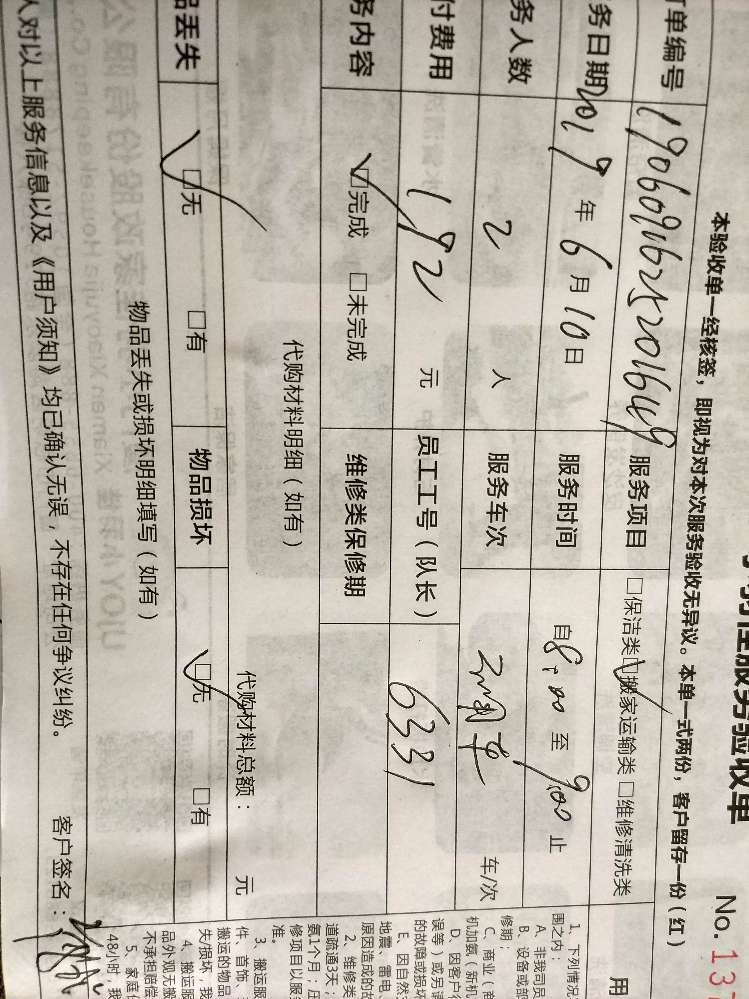 服务验收单
No. 13
本验收单一经核签，即视为对本次服务验收无异议。本单一式两份，客户留存一份(红)
单编号 1906091625201649 服务项目 □保洁类 ☑搬家运输类 □维修清洗类
务日期 2019 年 6 月 10 日 服务时间 自 8:00 至 9:00 止
务人数 2 人 服务车次 车/次
付费用 192 元 员工工号(队长) 6331
务内容 ☑完成 □未完成 维修类保修期
代购材料明细(如有) 代购材料总额: 元
品丢失 ☑无 □有 物品损坏 ☑无 □有
物品丢失或损坏明细填写(如有)
人对以上服务信息以及《用户须知》均已确认无误，不存在任何争议纠纷。 客户签名:
用
1、下列情况
围之内:
A、非我司员
B、设备或部
修期;
C、商业(商
机加氨(新机
D、因客户
误等)或另请
的故障或损坏
E、因自然
地震、雷电、
原因造成的故
2、维修类
道疏通3天;
氨1个月;压
修项目以服务
准。
3、搬运服
件、首饰、
搬运的物品
失/损坏，我
4、搬运服
品外观无搬
不承担赔偿
5、家庭
48小时，我